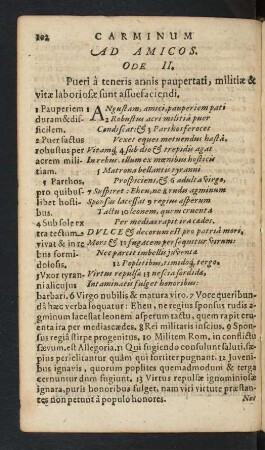 102 CARMINUM
AD AMICOS.
ODE II.
Pueri à teneris annis paupertati, militiæ &
vitæ laboriosæ sunt assuefaciendi.
1 Pauperiem
duram & dif-
ficilem.
2 Puer factus
robustus per
acrem mili-
tiam.
3 Parthos,
pro quibus-
libet hosti-
bus.
4 Sub sole ex
tra tectum
vivat & in re
bus formi-
dolosis.
5 Vxor tyran-
ni alicujus
ANgustam, amici, pauperiem pati
2 Robustus acri militiâ puer
Condiscat: & 3 Parthos feroces
Vexet eques metuendus hastâ.
Vitamq́; 4 sub dio & trepidis agat
In rebus. illum ex mœnibus hosticis
5 Matrona bellantis tyranni
Prospiciens, & 6 adulta virgo,
7 Suspiret: Eheu, ne rudis agminum
Sponsus lacessat 9 regius asperum
Tactu 10 leonem, quem cruenta
Per medias rapit ira cædes.
DVLCE & decorum est pro patriâ mori,
Mors & 11 fugacem persequitur virum:
Nec parcit imbellis juventæ
12 Poplitibus, timidoq́; tergo.
Virtus repulsæ 13 nescia sordidæ,
Intaminatis fulget honoribus:
barbari. 6 Virgo nubilis & matura viro. 7 Voce queribun-
dâ hæc verba loquatur: Eheu, ne regius sponsus rudis a-
gminum lacessat leonem asperum tactu, quem rapit cru-
enta ira per medias cædes. 8 Rei militaris inscius. 9 Spon-
sus regiâ stirpe progenitus. 10 Militem Rom. in conflictu
sævum. est Allegoria. 11 Qui fugiendo consulunt saluti, sæ-
pius periclitantur quàm qui fortiter pugnant. 12 Juveni-
bus ignavis, quorum poplites quemadmodum & terga
cernuntur dum fugiunt. 13 Virtus repulsæ ignominiosæ
ignara, puris honoribus fulget, nam viri virtute præstan-
tes non petunt à populo honores.
Nec